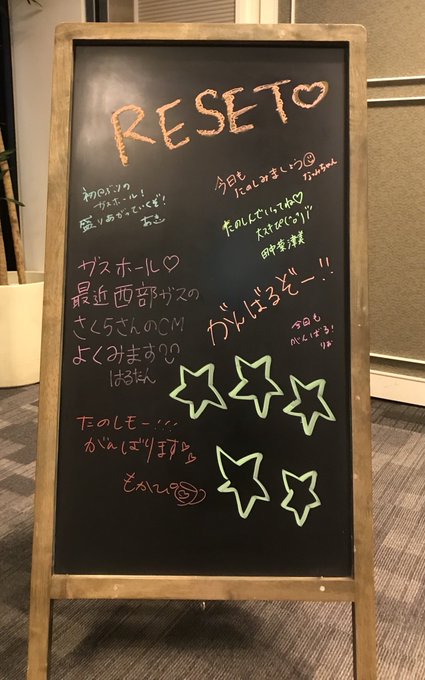 RESET♡
初めぶりの
ガスホール!
盛りあがっていくぞ!
あき
今日も
たのしみましょう
なみちゃん
たのしんでいってね♡
大スキぴ
田中菜津美
がんばるぞー!!
今日も
がんばる!
りお
ガスホール♡
最近西部ガスの
さくらさんのCM
よくみます♡♡
はるたん
たのしもー!!!
がんばります
もかぴ